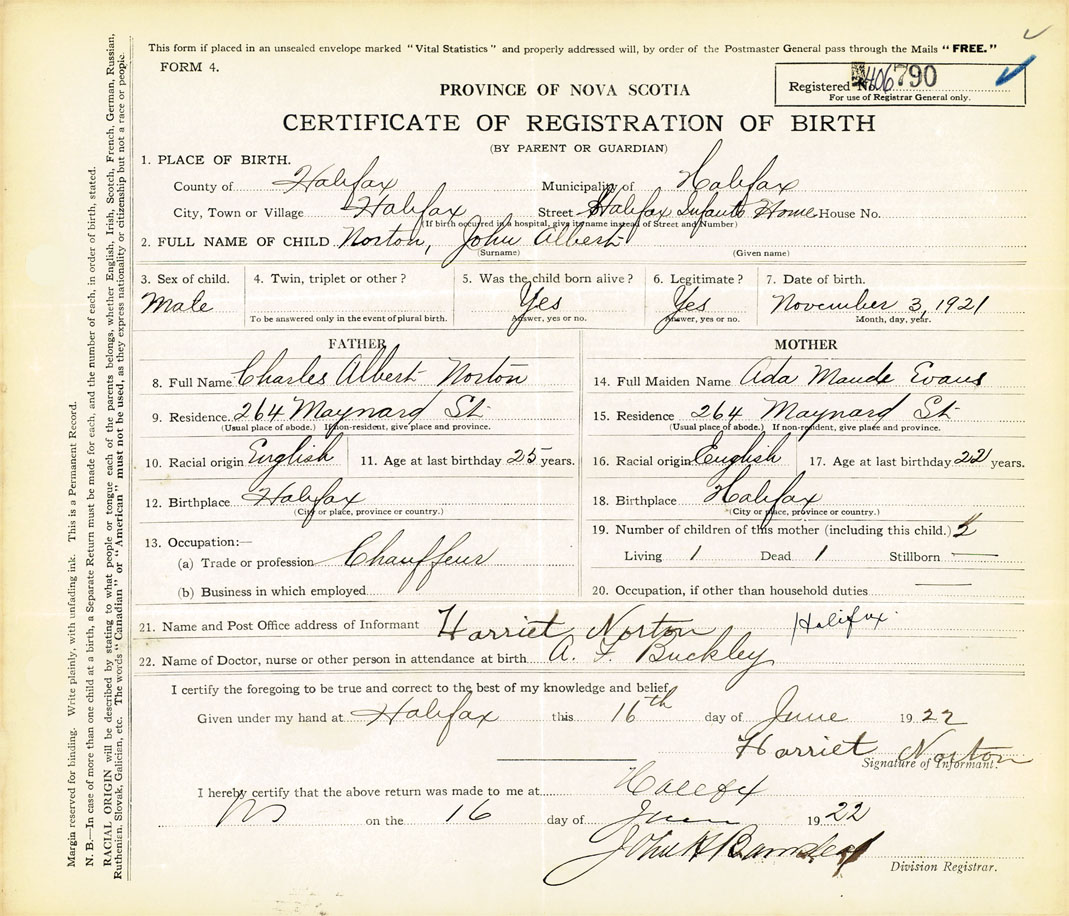 This form if placed in an unsealed envelope marked "Vital Statistics" and properly addressed will, by order of the Postmaster General pass through the Mails "FREE."
FORM 4.
Registered No. 406790
For use of Registrar General only.
PROVINCE OF NOVA SCOTIA
CERTIFICATE OF REGISTRATION OF BIRTH
(BY PARENT OR GUARDIAN)
1. PLACE OF BIRTH.
County of Halifax Municipality of Halifax
City, Town or Village Halifax Street Halifax Infants Home House No.
(If birth occurred in a hospital, give its name instead of Street and Number)
2. FULL NAME OF CHILD Norton, John Albert
(Surname) (Given name)
3. Sex of child. 4. Twin, triplet or other? 5. Was the child born alive? 6. Legitimate? 7. Date of birth.
Male Yes Yes November 3, 1921
To be answered only in the event of plural birth. Answer, yes or no. Answer, yes or no. Month, day, year.
FATHER
8. Full Name Charles Albert Norton
9. Residence 264 Maynard St
(Usual place of abode.) If non-resident, give place and province.
10. Racial origin English 11. Age at last birthday 25 years.
12. Birthplace Halifax
(City or place, province or country.)
13. Occupation:—
(a) Trade or profession Chauffeur
(b) Business in which employed
MOTHER
14. Full Maiden Name Ada Maude Evans
15. Residence 264 Maynard St
(Usual place of abode.) If non-resident, give place and province.
16. Racial origin English 17. Age at last birthday 22 years.
18. Birthplace Halifax
(City or place, province or country.)
19. Number of children of this mother (including this child.)
Living 1 Dead 1 Stillborn —
20. Occupation, if other than household duties —
21. Name and Post Office address of Informant Harriet Norton Halifax
22. Name of Doctor, nurse or other person in attendance at birth A. F. Buckley
I certify the foregoing to be true and correct to the best of my knowledge and belief
Given under my hand at Halifax this 16th day of June 1922
Harriet Norton
Signature of Informant.
I hereby certify that the above return was made to me at Halifax
on the 16 day of June 1922
John H
Division Registrar.
Margin reserved for binding. Write plainly, with unfading ink. This is a Permanent Record.
N. B.—In case of more than one child at a birth, a Separate Return must be made for each, and the number of each, in order of birth, stated.
RACIAL ORIGIN will be described by stating to what people or tongue each of the parents belongs, whether English, Irish, Scotch, French, German, Russian,
Ruthenian, Slovak, Galician, etc. The words "Canadian" or "American" must not be used, as they express nationality or citizenship but not a race or people